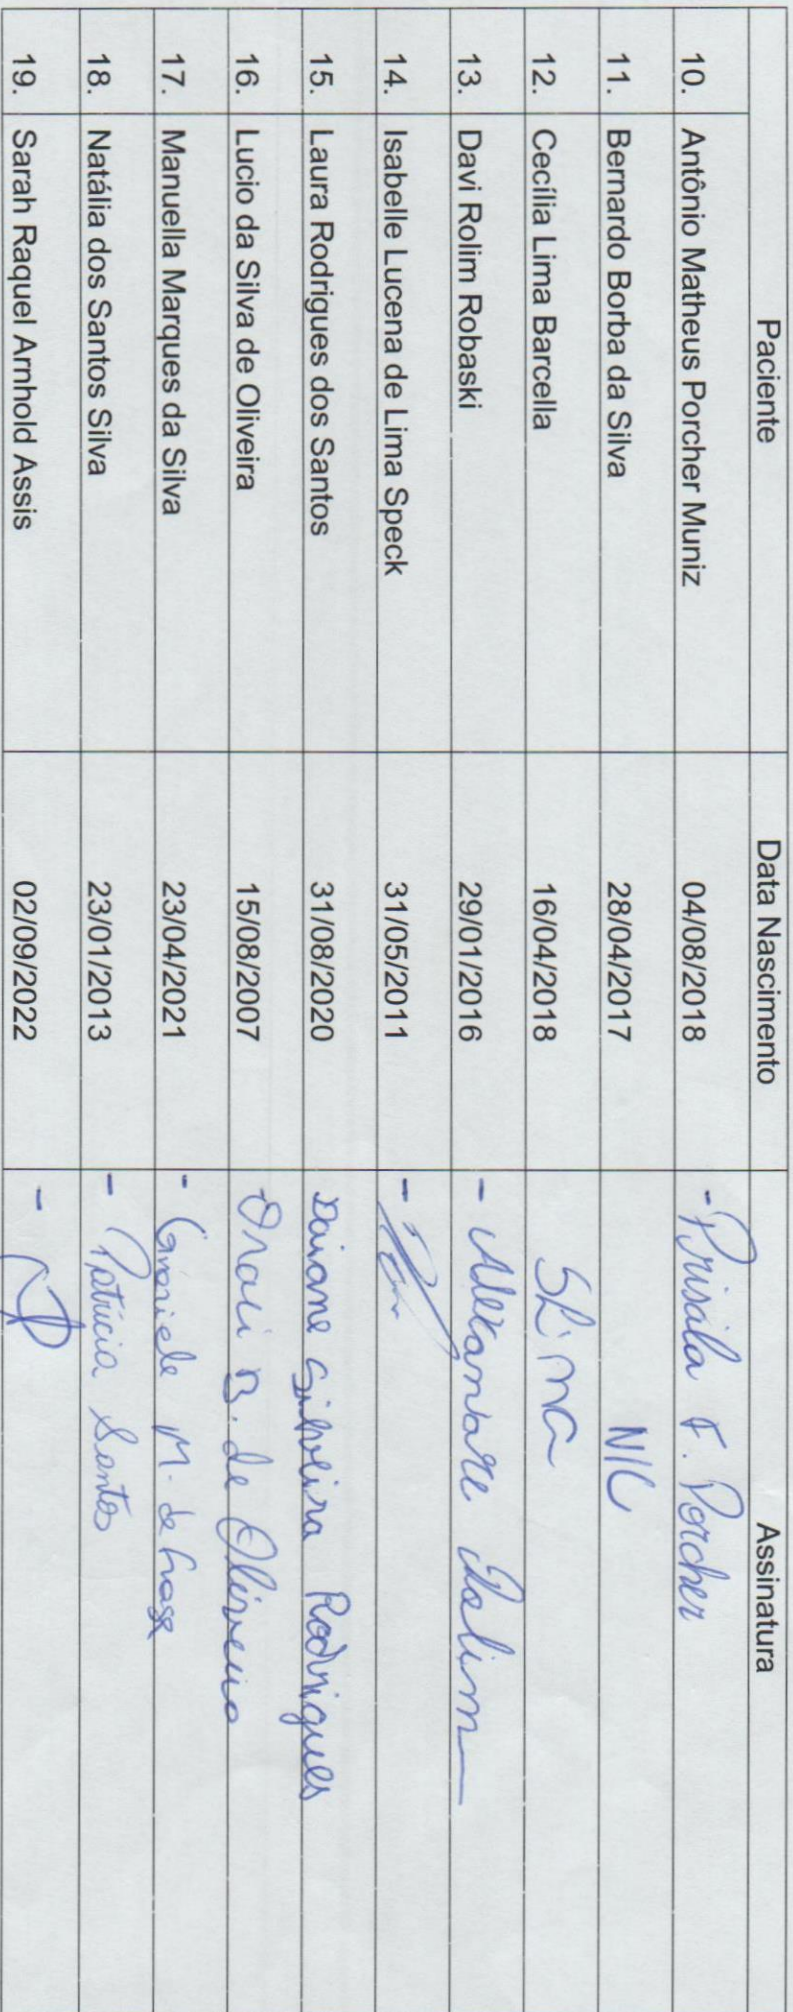 Paciente Data Nascimento Assinatura
10. Antônio Matheus Porcher Muniz 04/08/2018 - Prisaila F. Porcher
11. Bernardo Borba da Silva 28/04/2017 N/C
12. Cecília Lima Barcella 16/04/2018 SLima
13. Davi Rolim Robaski 29/01/2016 - Alexandre Rolim
14. Isabelle Lucena de Lima Speck 31/05/2011 -
15. Laura Rodrigues dos Santos 31/08/2020 Daiane Silveira Rodrigues
16. Lucio da Silva de Oliveira 15/08/2007 B. de Oliveira
17. Manuella Marques da Silva 23/04/2021 - M. de
18. Natália dos Santos Silva 23/01/2013 - Patrícia Santos
19. Sarah Raquel Arnhold Assis 02/09/2022 -